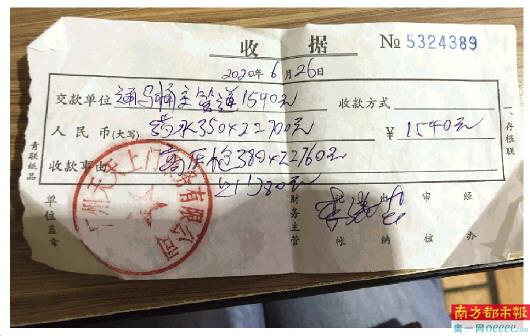 收 据 № 5324389
2020年6月26日
交款单位 通马桶主管道1540元 收款方式
人民币(大写) 药水350×2 2700元 ¥ 1540元
收款事由 高压枪380×2 2760元
单位盖章 财务主管 记帐 出纳 审核 经办
一存根联
青联纸品
南方都市报
奥一网oeeee.com